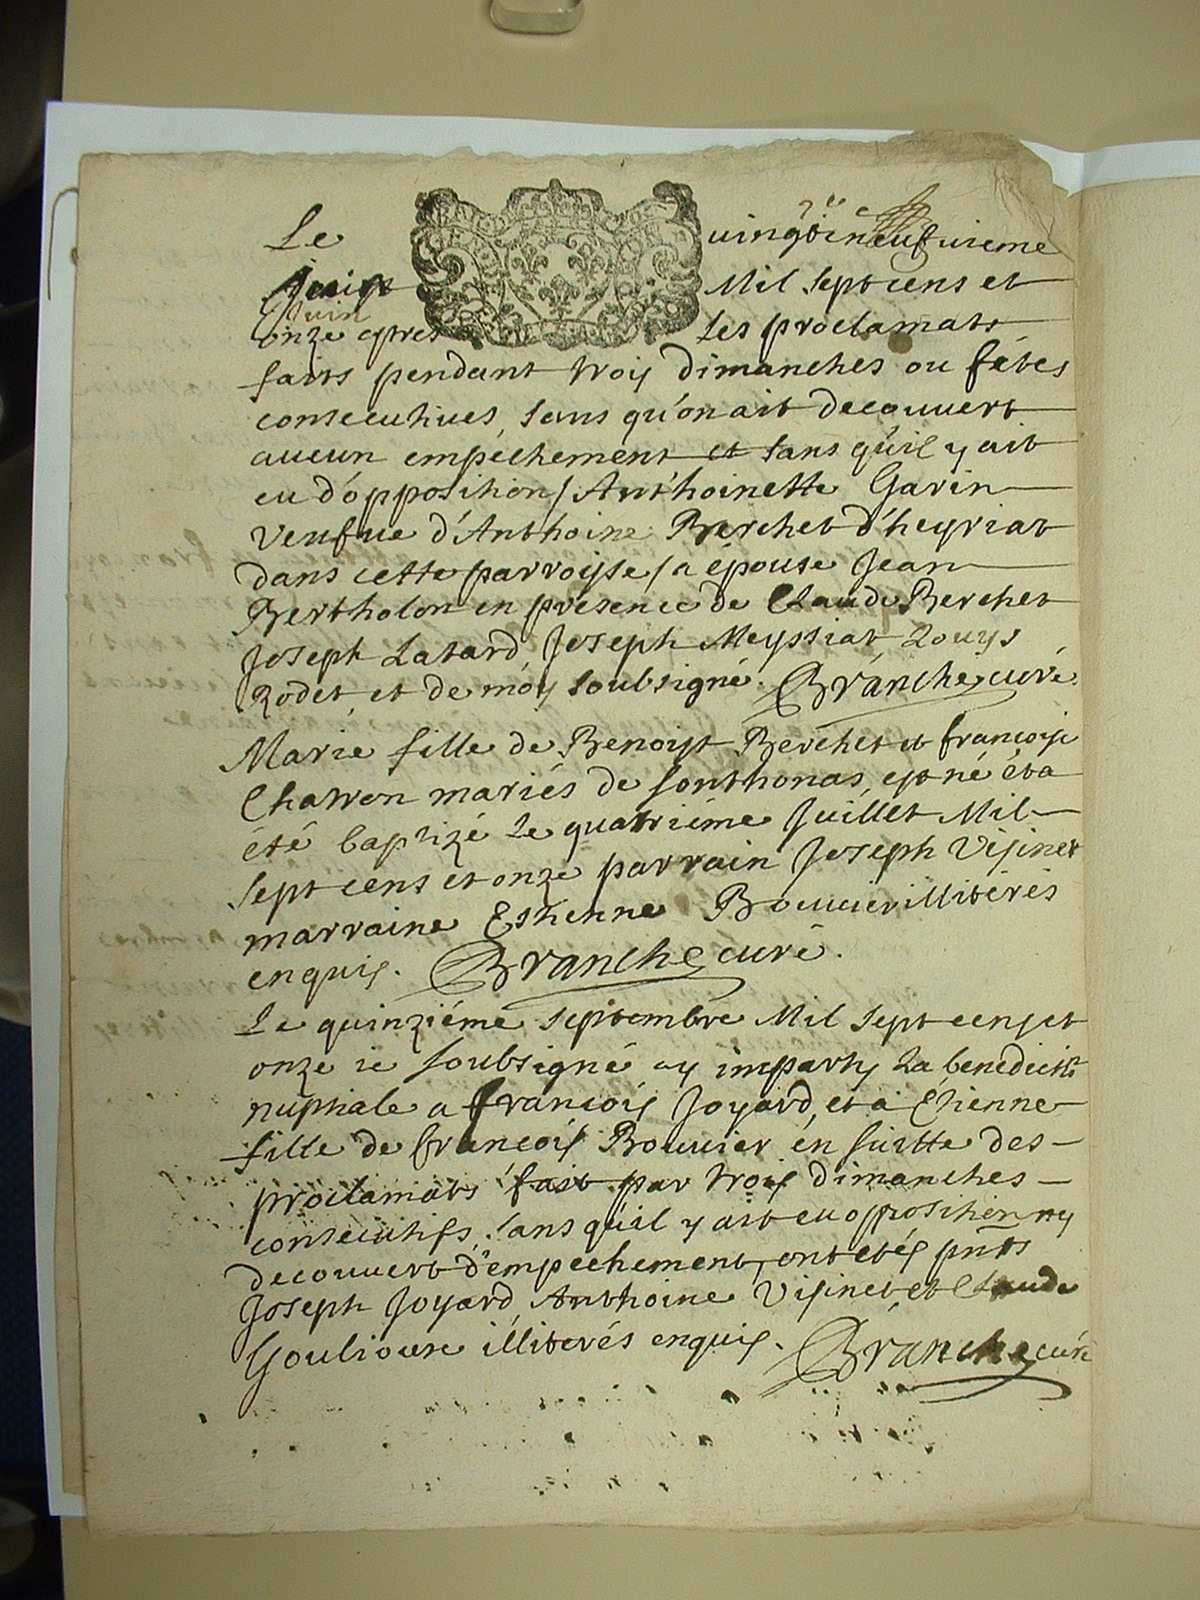 Le vingtineufvieme
Juin Mil sept cens et
Juin
onze apres Les proclamats
faits pendant trois dimanches ou fétes
consecutives, sans qu'on ait decouvert
aucun empéchement et sans qu'il y ait
eu d'opposition / Anthoinette Garin
veufve d'Anthoine Berchet d'heyriat
dans cette parroisse / a épouse Jean
Bertholon en présence de Claude Berchet
Joseph Latard, Joseph Meyssiat Louys
Rodet, et de moy soubsigné. Branche curé
Marie fille de Benoist Berchet et françoise
mariés de sonthonas, est né et a
été baptizé Le quatriéme Juillet Mil
sept cens et onze parrain Joseph Visinet
marraine Ethienne Bouvier illiterés
enquis. Branche curé.
Le quinziéme septembre Mil sept cens et
onze ie soubsigné ay imparty La benedictn
nuptiale a françois Joyard, et a Ethienne
fille de françois Bouvier en suitte des
proclamats fait par trois dimanches
consecutifs, sans qu'il y ait eu opposition ny
decouvert d'empechement, ont etés pnts
Joseph Joyard, Anthoine Visinet et Claude
Gouliouse illiterés enquis. Branche curé